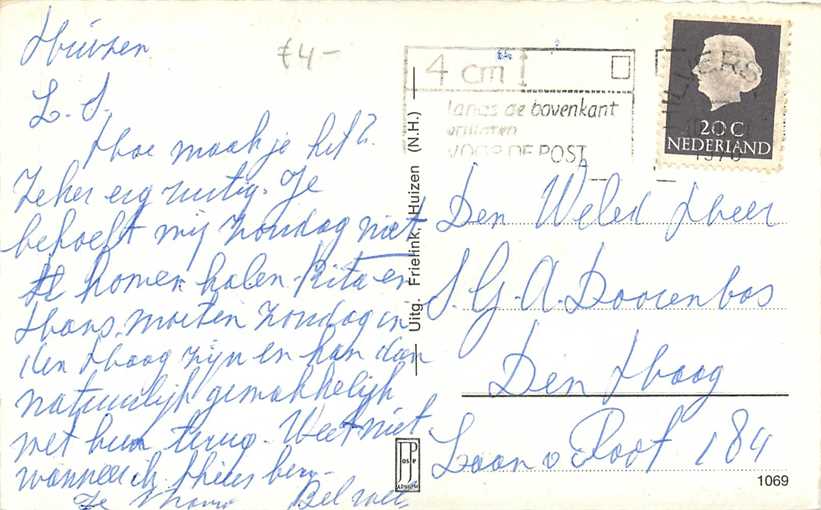 Huizen
£4-
L. S.
Hoe maak je het?
Zeker erg rustig. Je
behoeft mij Zondag niet
te komen halen. Rita en
Hans moeten Zondag in
den Haag zijn en kan dan
natuurlijk gemakkelijk
met hun terug. Weet niet
wanneer ik thuis ben.
Je
Bel wel.
4 cm
langs de bovenkant
VOOR DE POST
HILVERSUM
20 C
NEDERLAND
Uitg. Frielink, Huizen (N.H.)
Den Weled Heer
S. G. A. Doorenbos
Den Haag
Laan v Poot 184
JosPe
1069